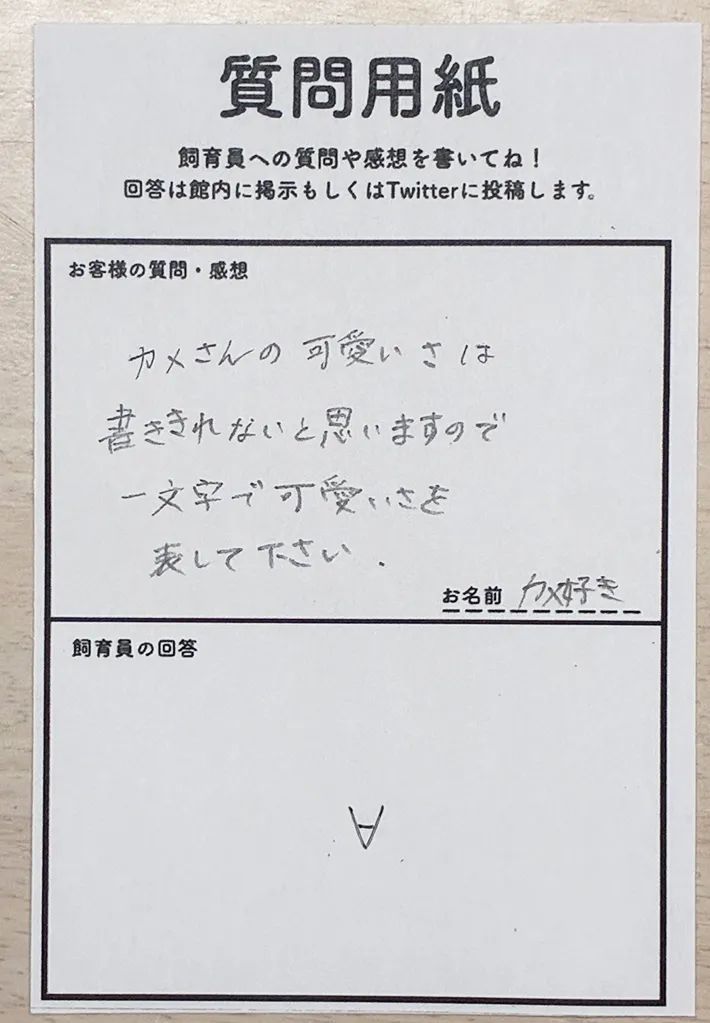 質問用紙
飼育員への質問や感想を書いてね！
回答は館内に掲示もしくはTwitterに投稿します。
お客様の質問・感想
カメさんの可愛いさは
書ききれないと思いますので
一文字で可愛いさを
表して下さい.
お名前 カメ好き
飼育員の回答
∀